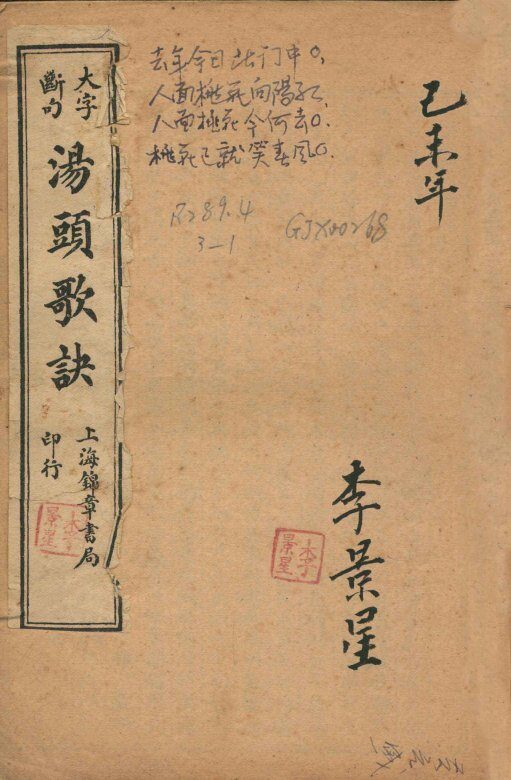 大字
斷句
湯頭歌訣
上海錦章書局
印行
李景星
去年今日此门中。
人面桃花向陽红
人面桃花今何去。
桃花已就笑春风。
R289.4
3-1
GJX00268
己未年
李景星
李景星